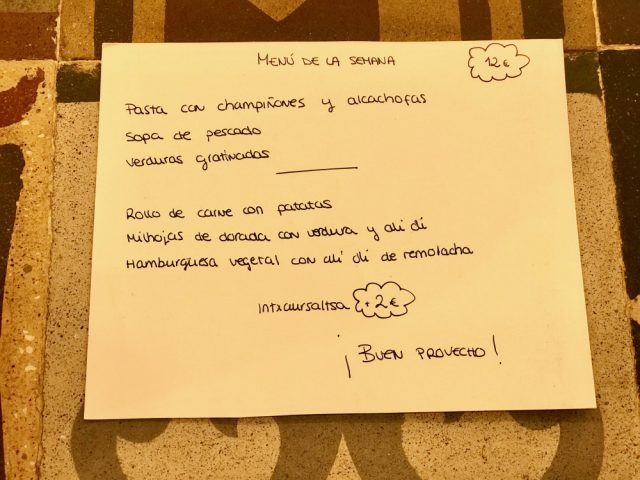 MENÚ DE LA SEMANA
12 €
Pasta con champiñones y alcachofas
Sopa de pescado
Verduras gratinadas
Rollo de carne con patatas
Milhojas de dorada con verdura y ali oli
Hamburguesa vegetal con ali oli de remolacha
Intxaursaltsa +2 €
¡BUEN PROVECHO!